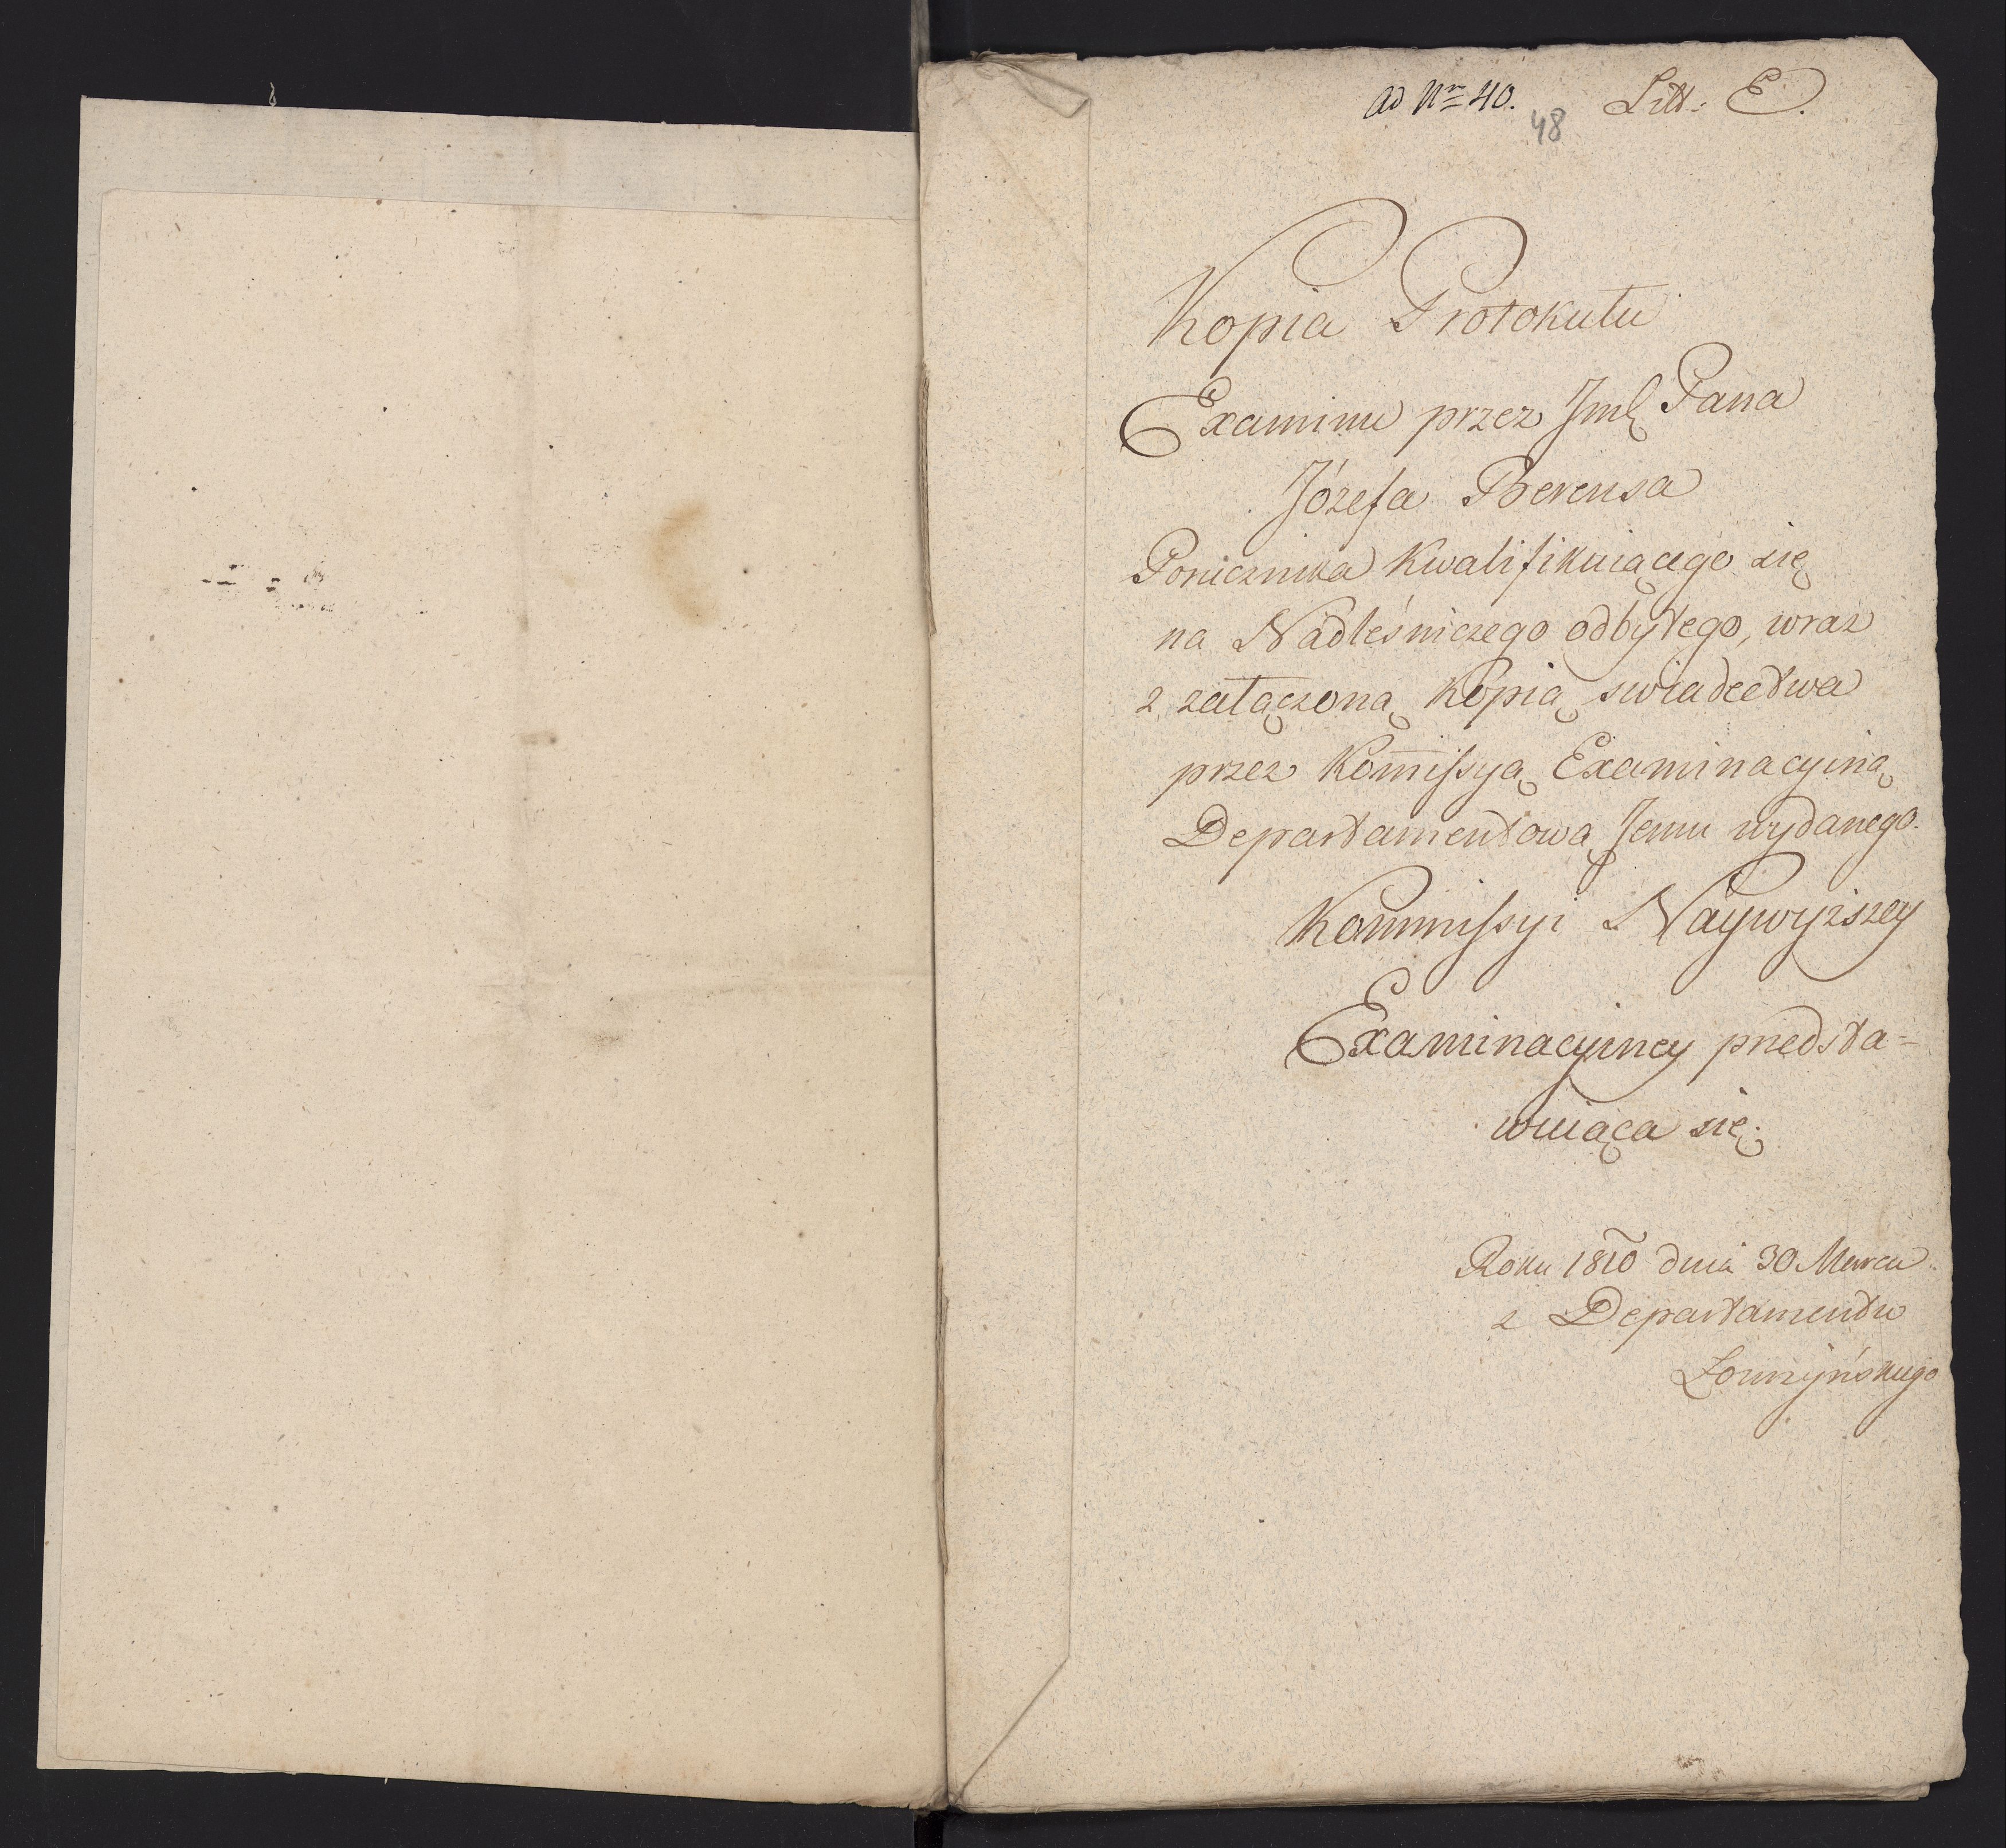 ad Nr 40. Litt: E.
48
Kopia Protokułu
Examinu przez Jmć Pana
Józefa Berensa
Porucznika kwalifikuiącego się
na Nadleśniczego odbytego, wraz
z załączoną kopią swiadectwa
przez Kom̄issyą Examinacyiną
Departamentową Jemu wydanego.
Kommissyi Naywyższey
Examinacyiney przedsta=
wuiąca się.
Roku 1810 dnia 30 Marca
z Departamentu
Łomżyńskiego